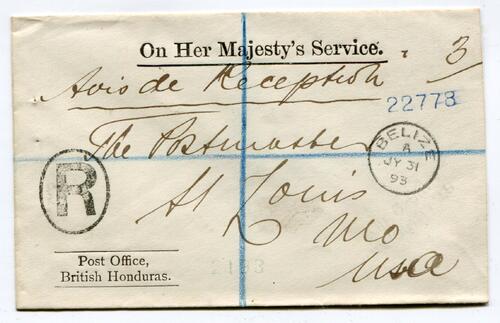 On Her Majesty's Service.
3
Avis de Reception
22773
The Postmaster
BELIZE
A
JY 31
93
R
St Louis
Mo
USA
Post Office,
British Honduras.
2133